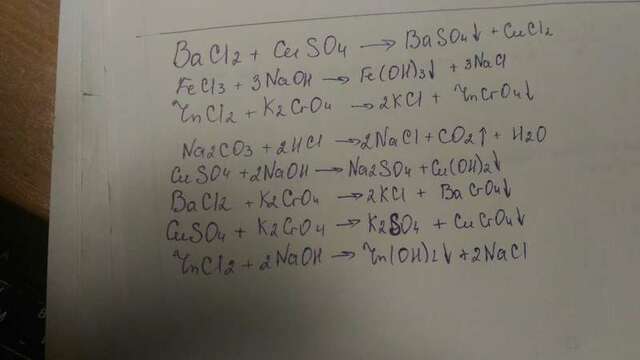 BaCl2 + CuSO4 → BaSO4↓ + CuCl2
FeCl3 + 3NaOH → Fe(OH)3↓ + 3NaCl
ZnCl2 + K2CrO4 → 2KCl + ZnCrO4↓
Na2CO3 + 2HCl → 2NaCl + CO2↑ + H2O
CuSO4 + 2NaOH → Na2SO4 + Cu(OH)2↓
BaCl2 + K2CrO4 → 2KCl + BaCrO4↓
CuSO4 + K2CrO4 → K2SO4 + CuCrO4↓
ZnCl2 + 2NaOH → Zn(OH)2↓ + 2NaCl